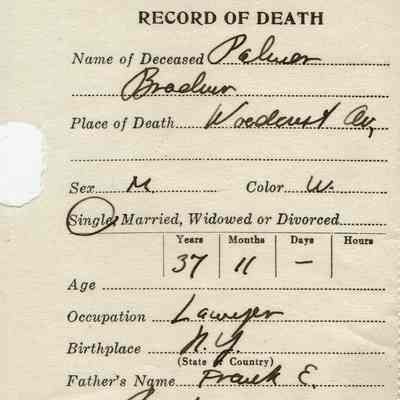 RECORD OF DEATH
Name of Deceased Palmer
Place of Death Woodcrest Av,
Sex M. Color W.
Single, Married, Widowed or Divorced
Years Months Days Hours
37 11 –
Age
Occupation Lawyer
Birthplace N.Y.
(State or Country)
Father's Name Frank E.